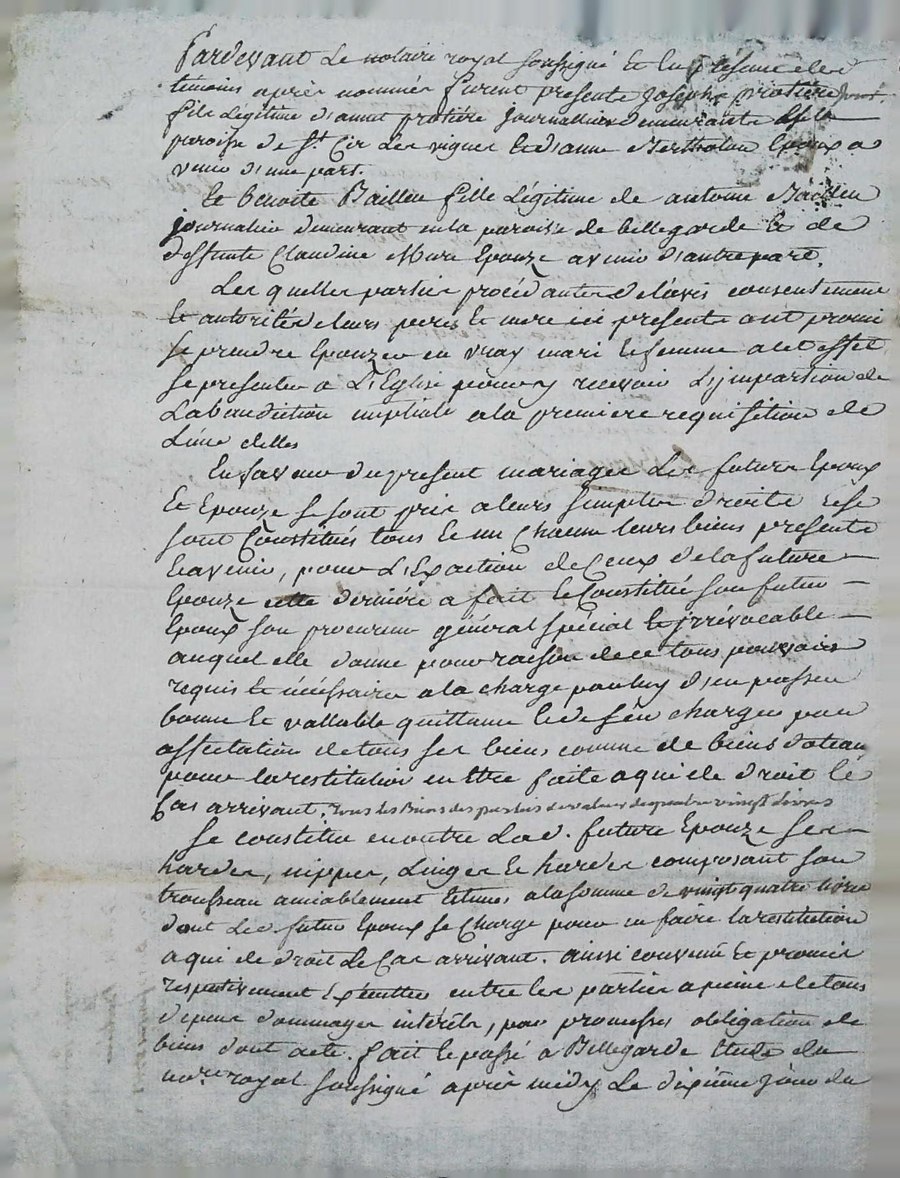 Pardevant Le notaire royal soussigné et En présence des
témoins après nommés furent presents Joseph protiere
fils Légitime d'annet protière journallier demeurants
paroisse de St Cir Les vignes et d'anne Bertholon Epoux a
venir d'une part.
Et benoite Baillen fille Légitime de antoine Baillen
journalier demeurant en la paroisse de bellegarde et de
deffunte Claudine Mure Epouze avenir d'autre part.
Les quelles parties procédantes de lavis consentement
et autorités de leurs peres et mere ici presents ont promi
se prendre Epouzer en vray mari et femme a cet effet
se presenter a L'Eglise pour y recevoir L'jmpartion de
La benediction nuptiale a la premiere requisition de
Lune delles
En faveur du present mariage Les futurs Epoux
Et Epouze se sont pris a leurs simples droits et se
sont Constitués tous et un chacun leurs biens presents
et avenir, pour L'Exaction de Ceux de la future
Epouze cette derniére a fait et Constitué son futur
Epoux son procureur général spécial et jrrévocable
auquel elle donne pour raison de ce tous pouvoirs
requis et nécéssaires a la charge par luy d'en passer
bonne et vallable quittance et de s'en charger par
affectation de tous ses biens comme de biens dotaux
pour la restitution en Etre faite a qui de droit le
Cas arrivant. tous les Biens des parties de valeur de quatre vingt livres
Se constitue en outre Lad. future Epouze ses
hardes, nippes, Linges et hardes composant son
trousseau amiablement Estimés a la somme de vingt quatre livres
dont Led. futur Epoux se Charge pour en faire la restitution
a qui de droit Le Cas arrivant. ainsi convenu Et promis
respectivement entre les parties a peine de tous
depens dommages intérêts, par promesses obligation de
biens dont acte. fait et passé a Bellegarde Etude du
no.re royal soussigné après midy Le dixieme jour du